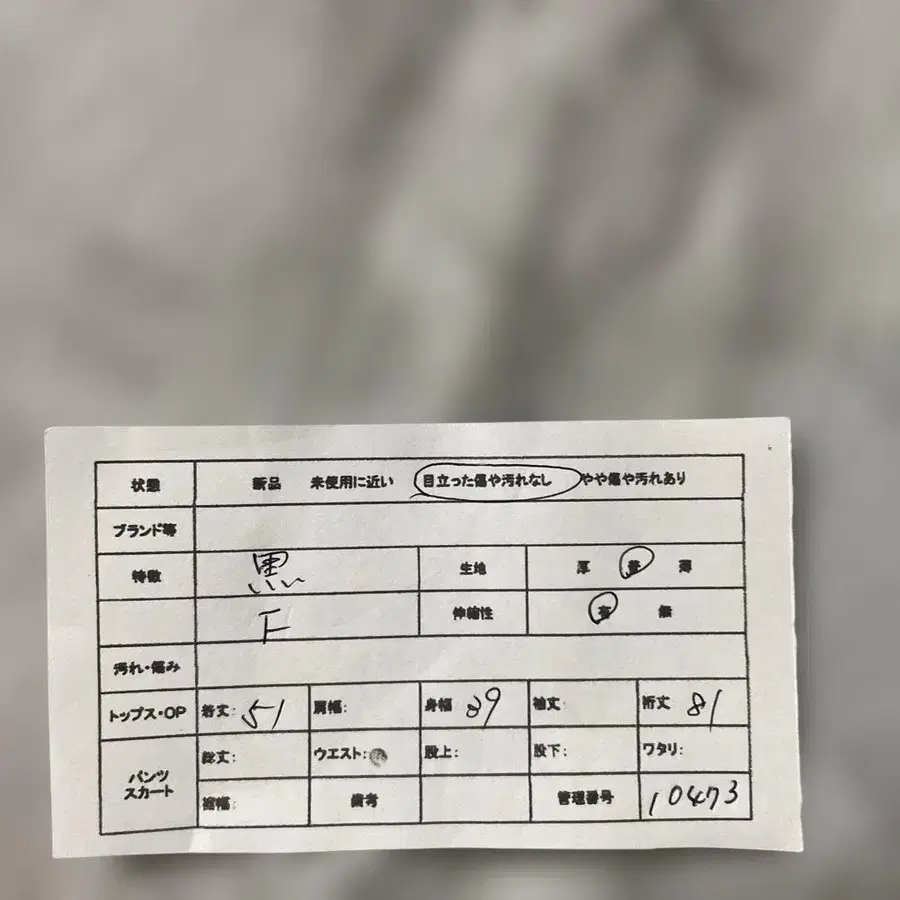 状態 新品 未使用に近い 目立った傷や汚れなし やや傷や汚れあり
ブランド等
特徴 黒 生地 厚 普 薄
F 伸縮性 有 無
汚れ・傷み
トップス・OP 着丈: 51 肩幅: 身幅 39 袖丈: 裄丈 81
パンツ スカート 総丈: ウエスト: 股上: 股下: ワタリ:
裾幅: 備考 管理番号 10473